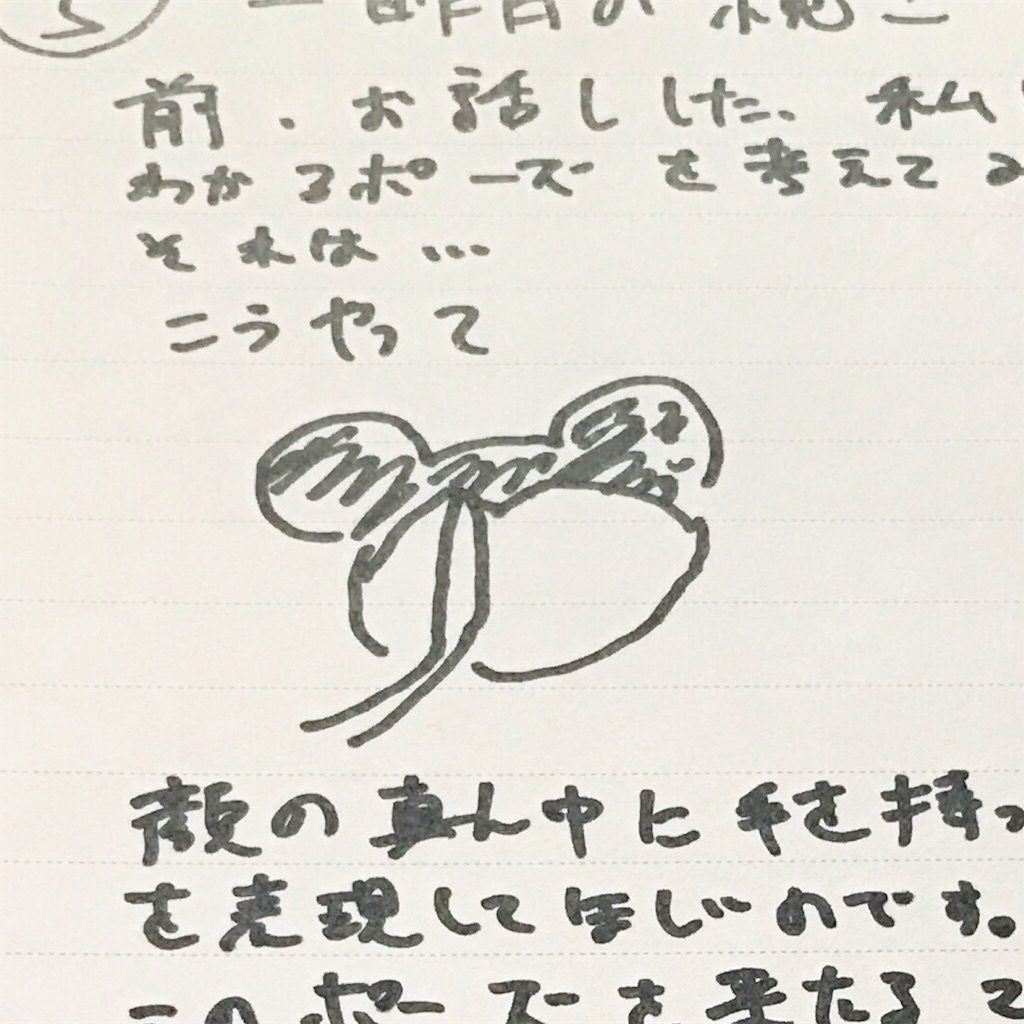 5 一昨日の続き
前、お話しした、私
わかるポーズを考えて
それは…
こうやって
顔の真ん中に手を持っ
を表現してほしいのです。
このポーズを来たる